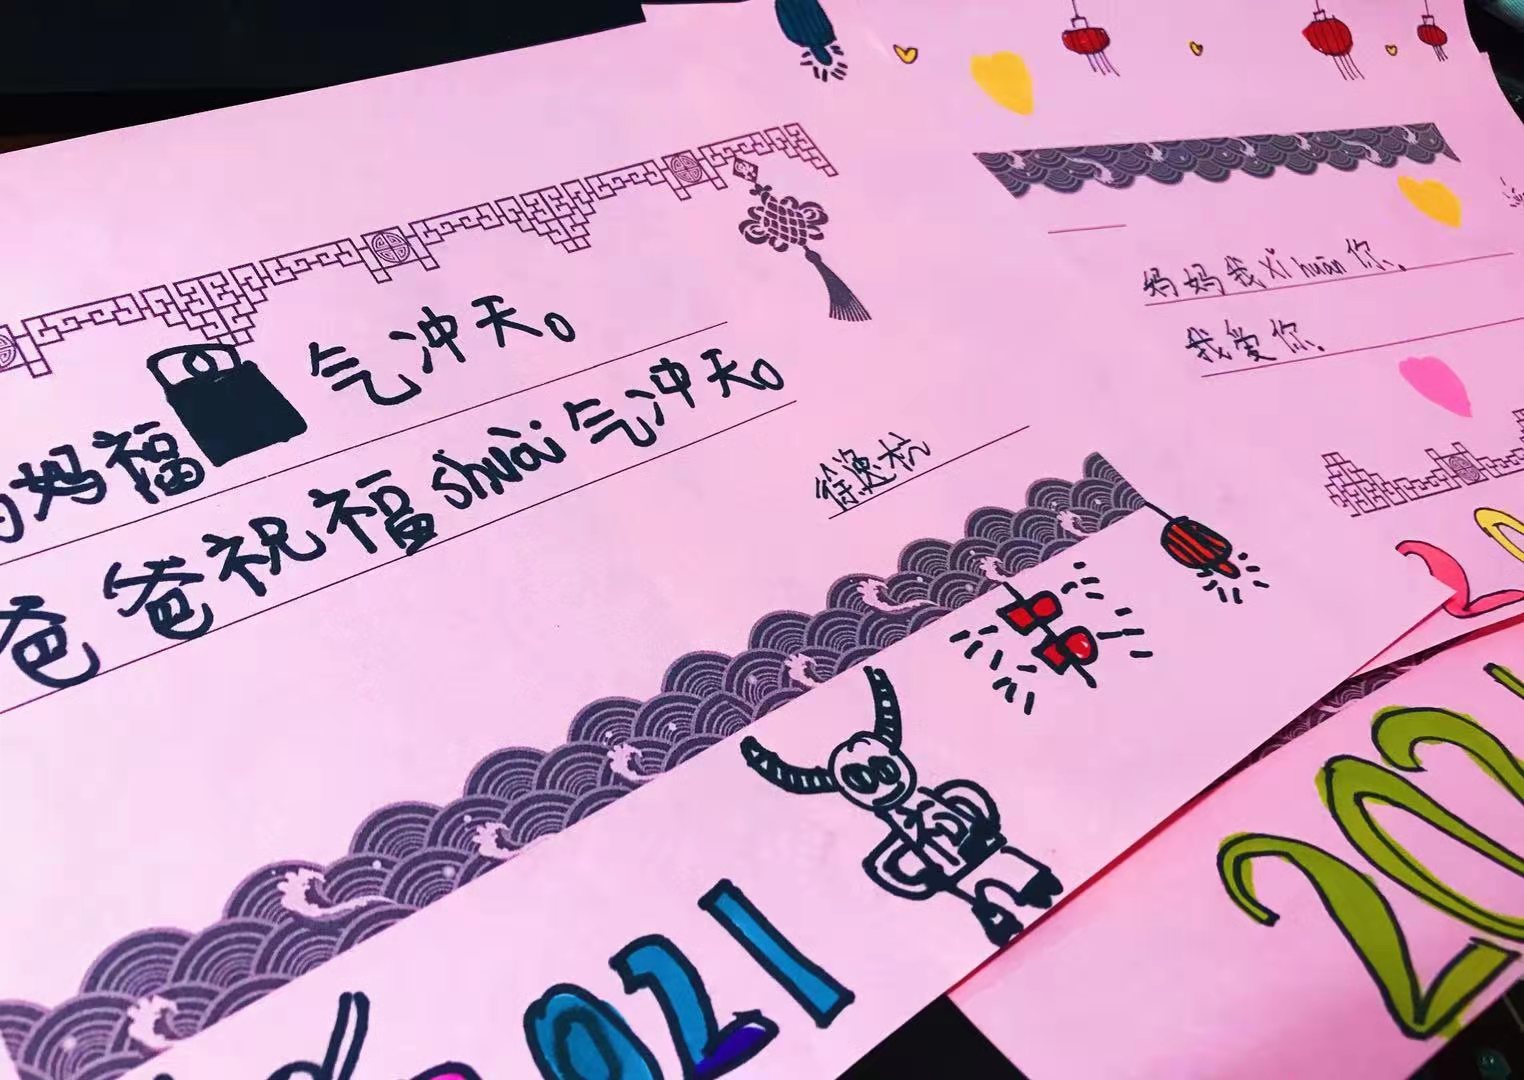 妈妈福气冲天。
爸爸祝福shuài气冲天。
徐逸杭
2021
妈妈我xǐ huān你。
我爱你。
20
2021